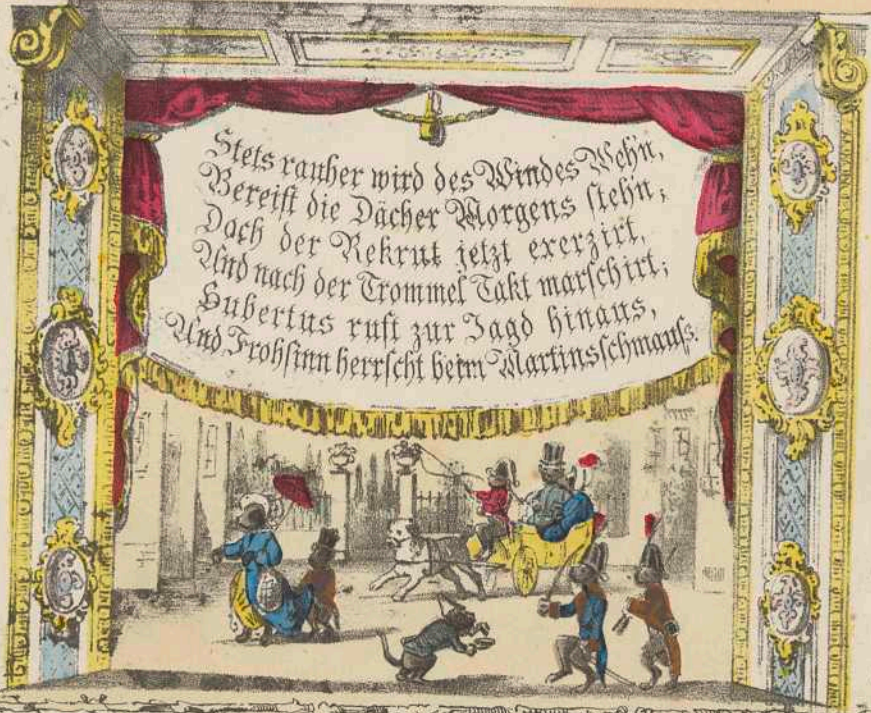 Stets rauher wird des Windes Weh'n,
Bereift die Dächer Morgens steh'n;
Doch der Rekrut jetzt exerzirt,
Und nach der Trommel Takt marschirt;
Hubertus ruft zur Jagd hinaus,
Und Frohsinn herrscht beim Martinsschmauß.